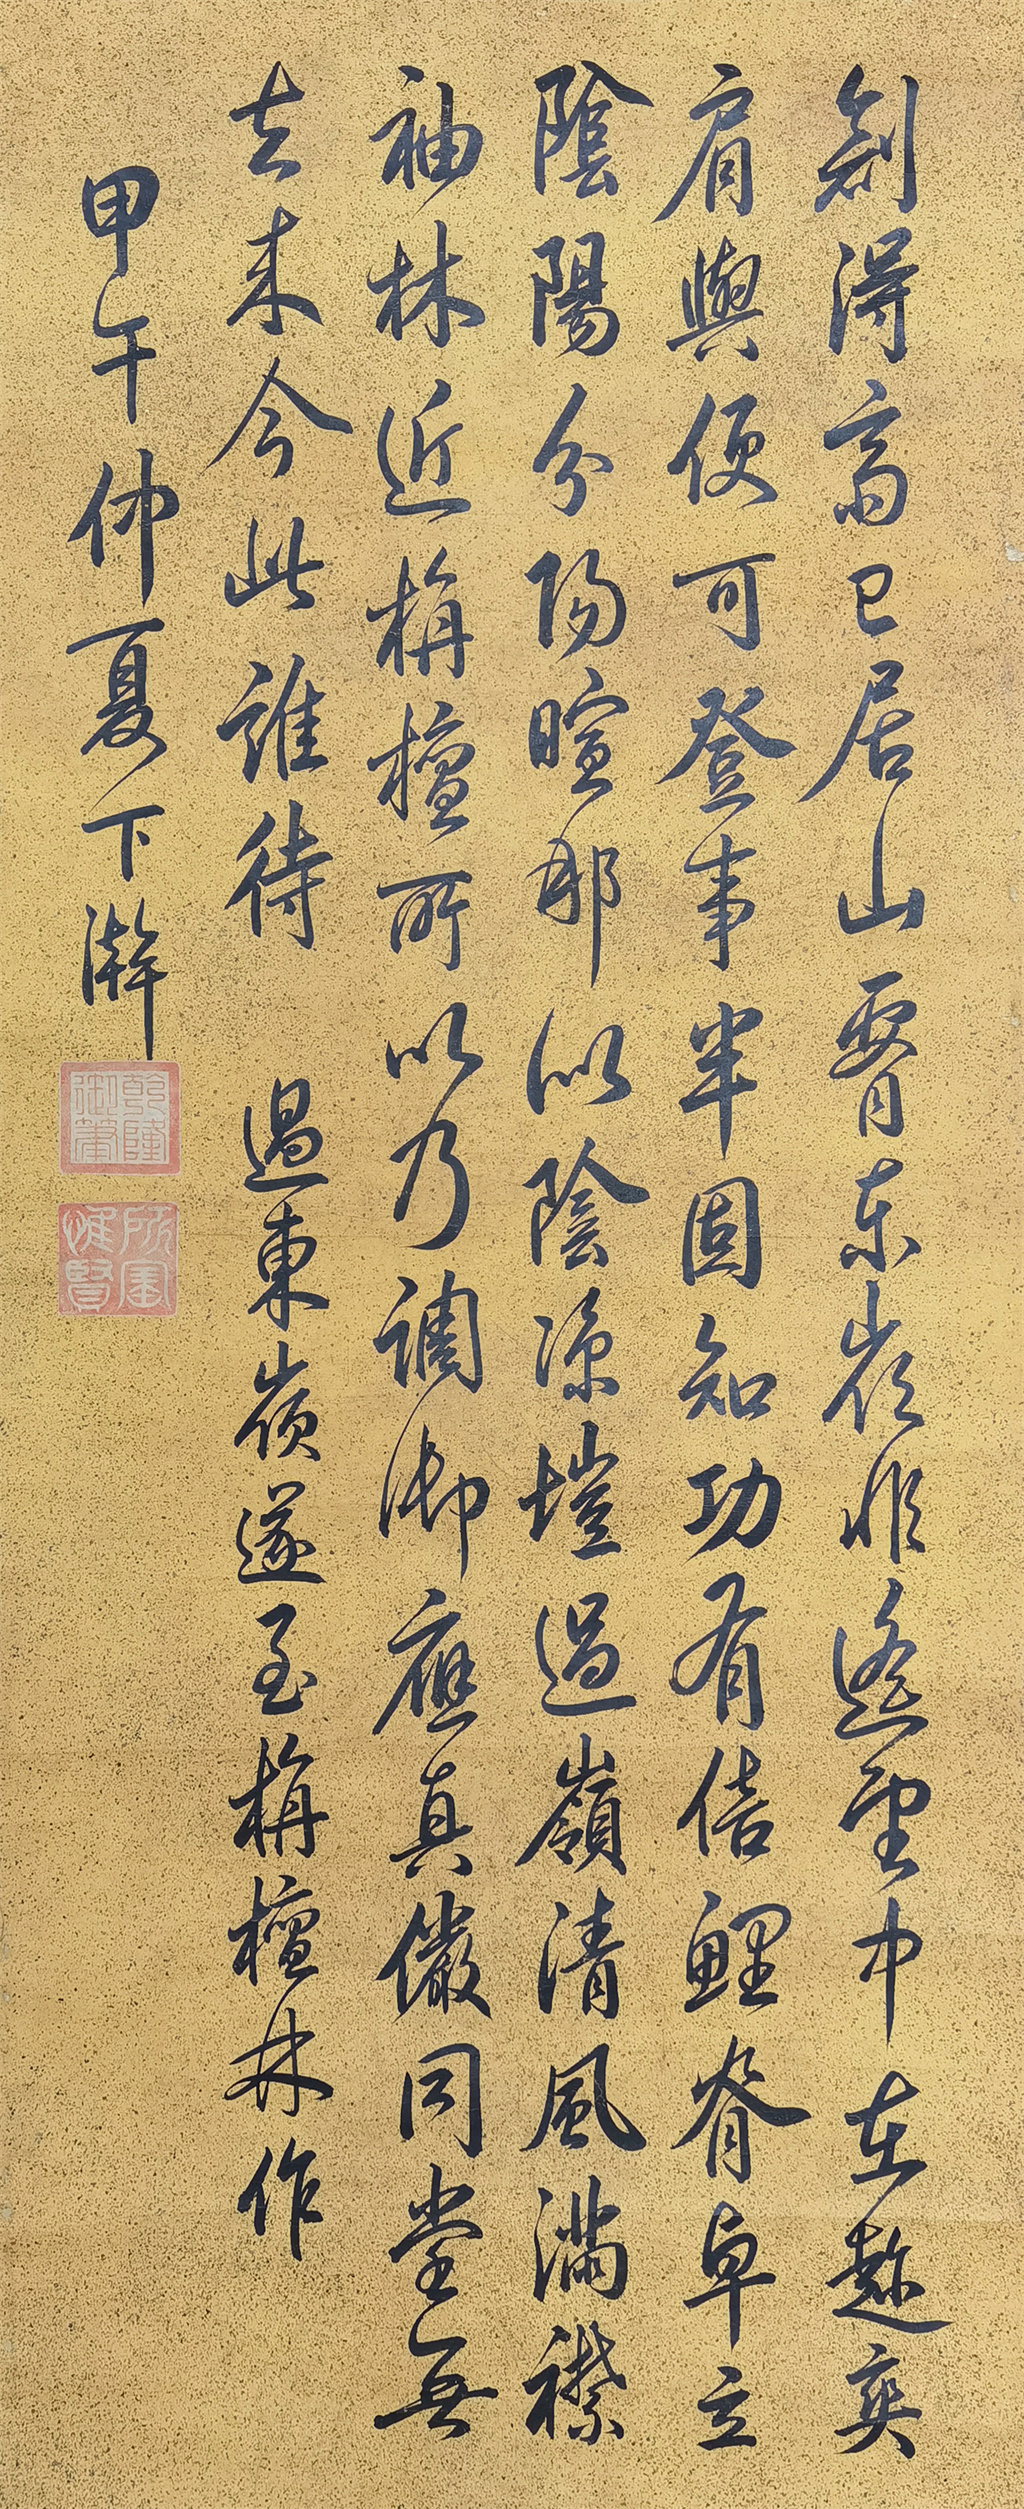 創得斎已居山腰东岭非遥望中在趂爽
肩輿便可登事半固知功有倍鯉脊卓立
陰陽分陽暄那似陰凉塏過嶺清風滿襟
袖林近栴檀所以乃調御應真儼同堂無
去来今此誰待 過東嶺遂至栴檀林作
甲午仲夏下澣
乾隆御筆
所寶惟賢